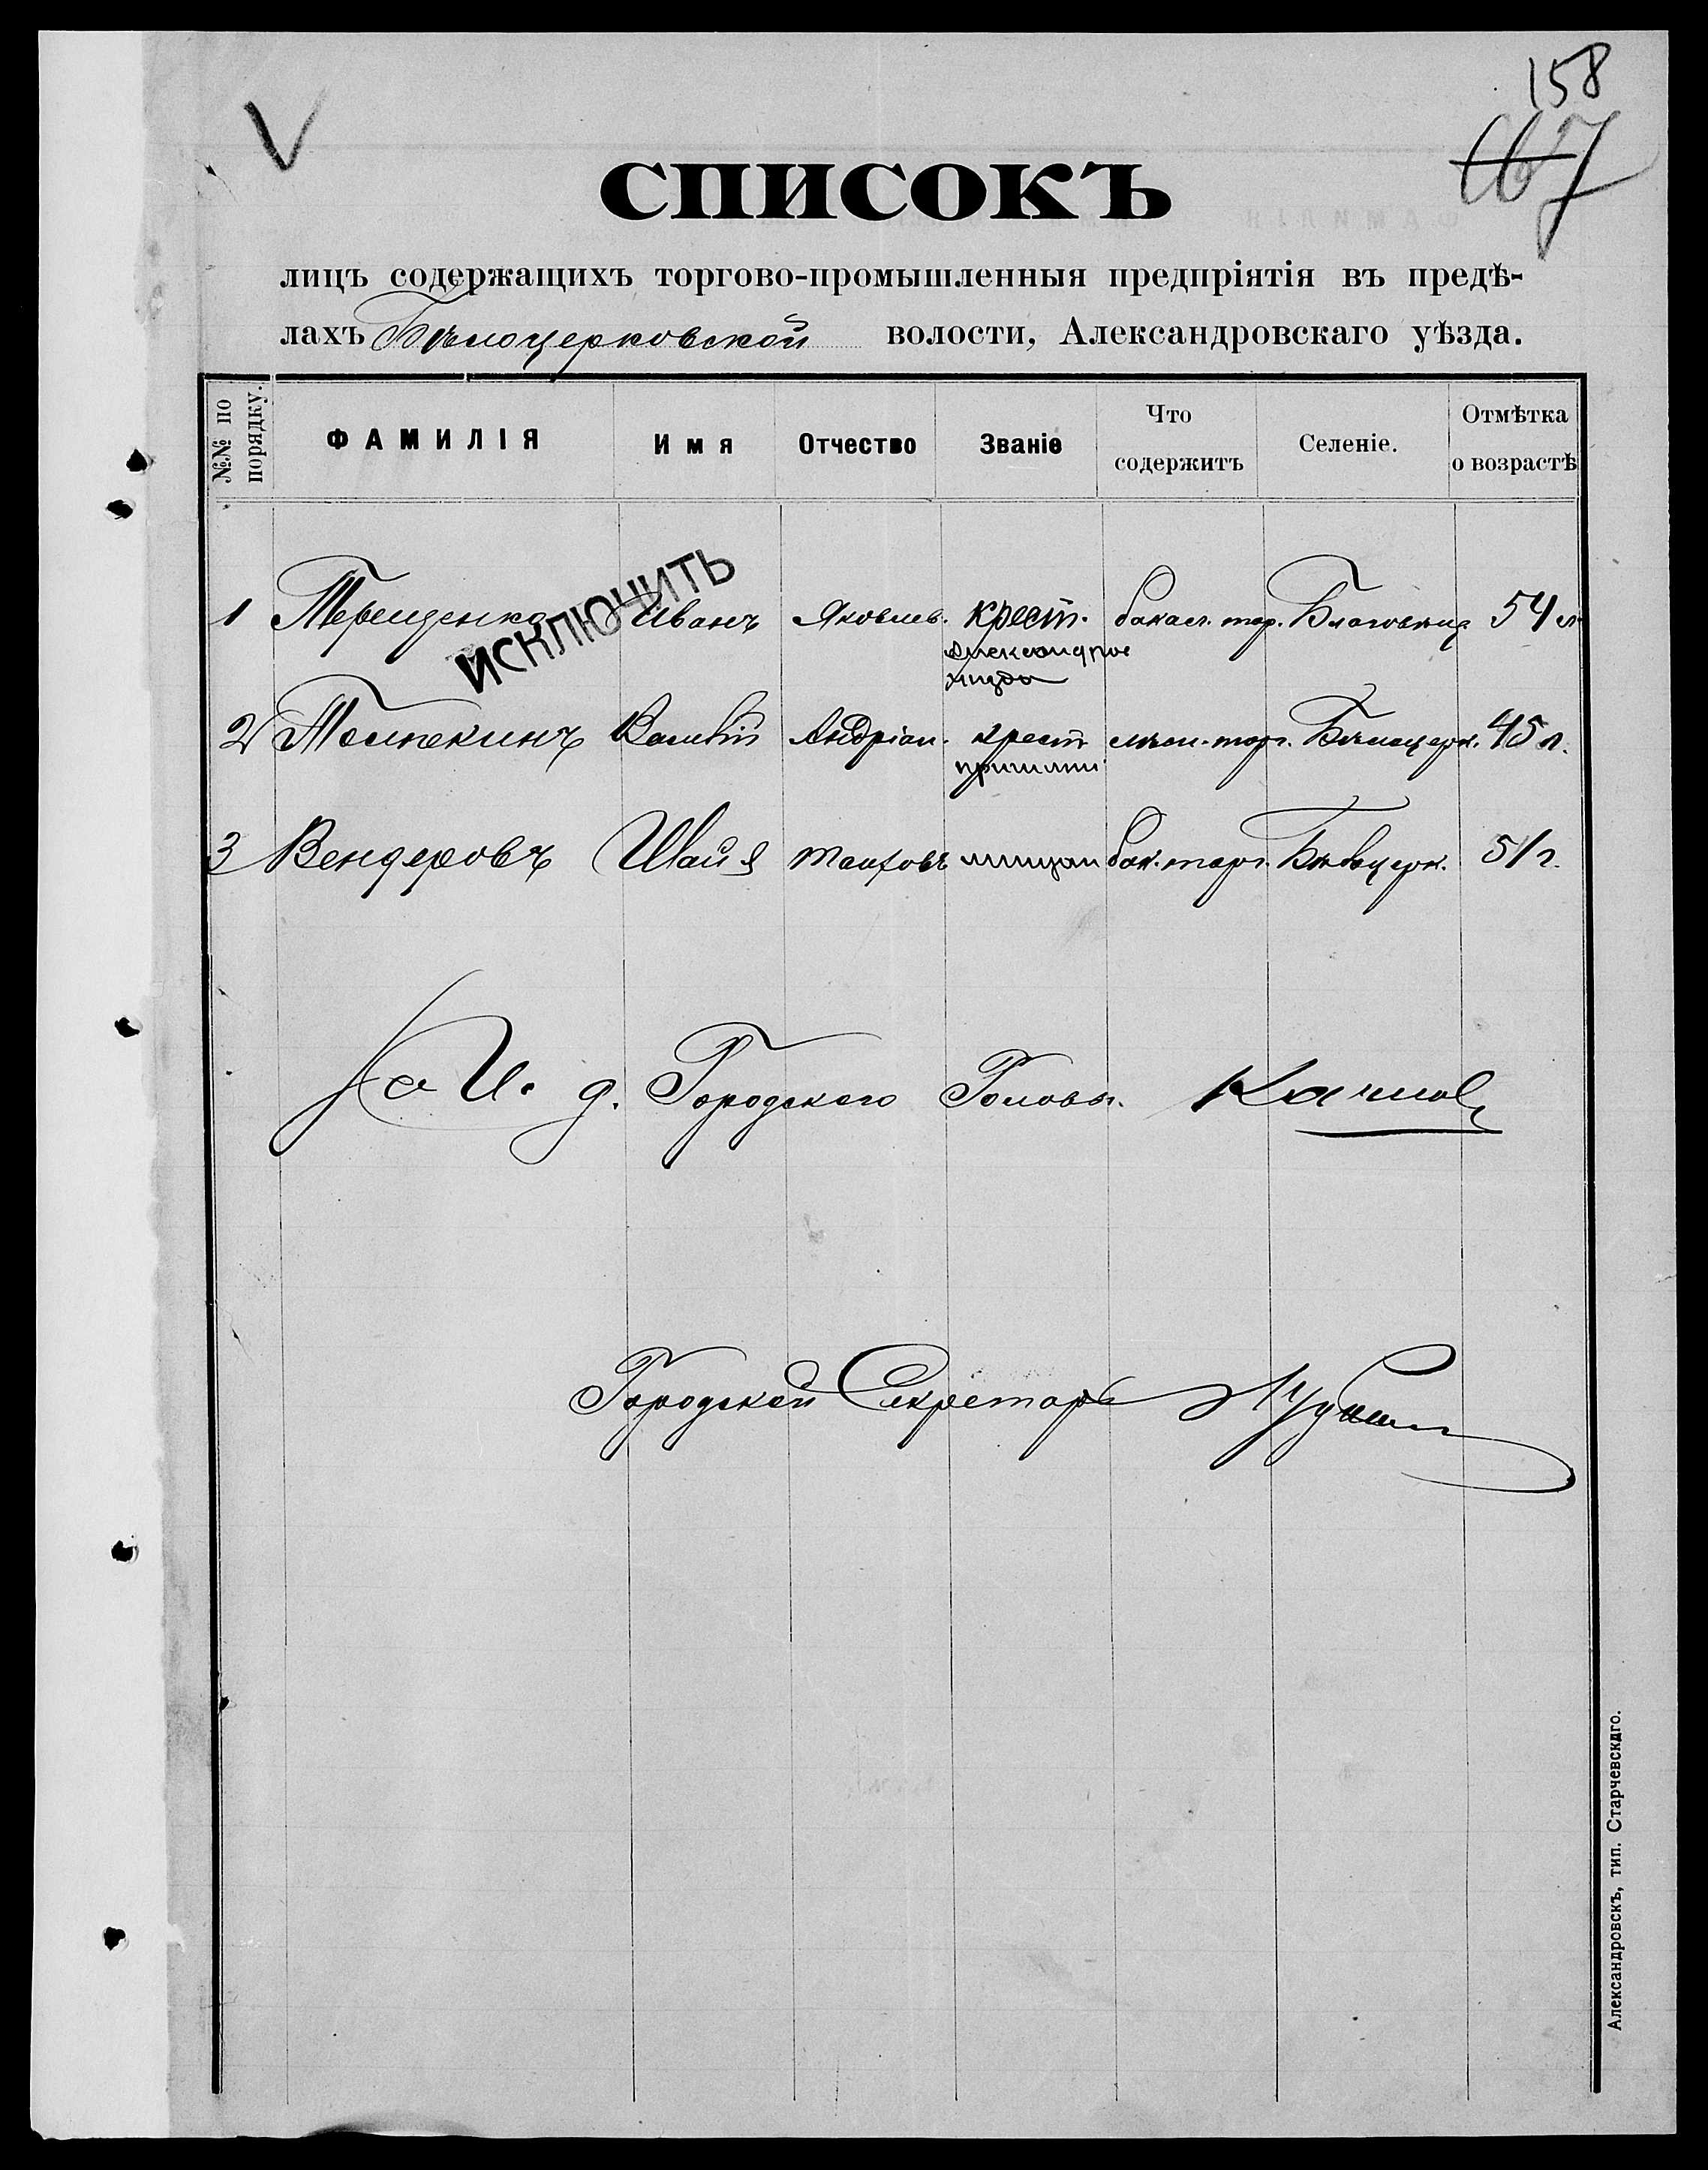 158
167
СПИСОКЪ
лицъ содержащихъ торгово-промышленныя предпріятія въ предѣ-
лахъ Бѣлоцерковской волости, Александровскаго уѣзда.
№№ по порядку. ФАМИЛІЯ Имя Отчество Званіе Что содержитъ Селеніе. Отмѣтка о возрастѣ
ИСКЛЮЧИТЬ
1 Терещенко Иванъ Яковлев. крест. бакал. тор. 54 л
2 Василій Андріан. крест. торг. Бѣлоцерк. 45 л.
3 Вендеровъ Шайя мещан бак. торг. Бѣлоцерк. 51 г.
За И. д. Городского Головы.
Городской Секретарь
Александровскъ, тип. Старчевскаго.